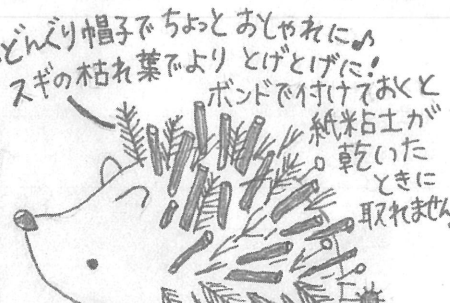 どんぐり帽子でちょっとおしゃれに♪
スギの枯れ葉でよりとげとげに!
ボンドで付けておくと
紙粘土が
乾いた
ときに
取れません